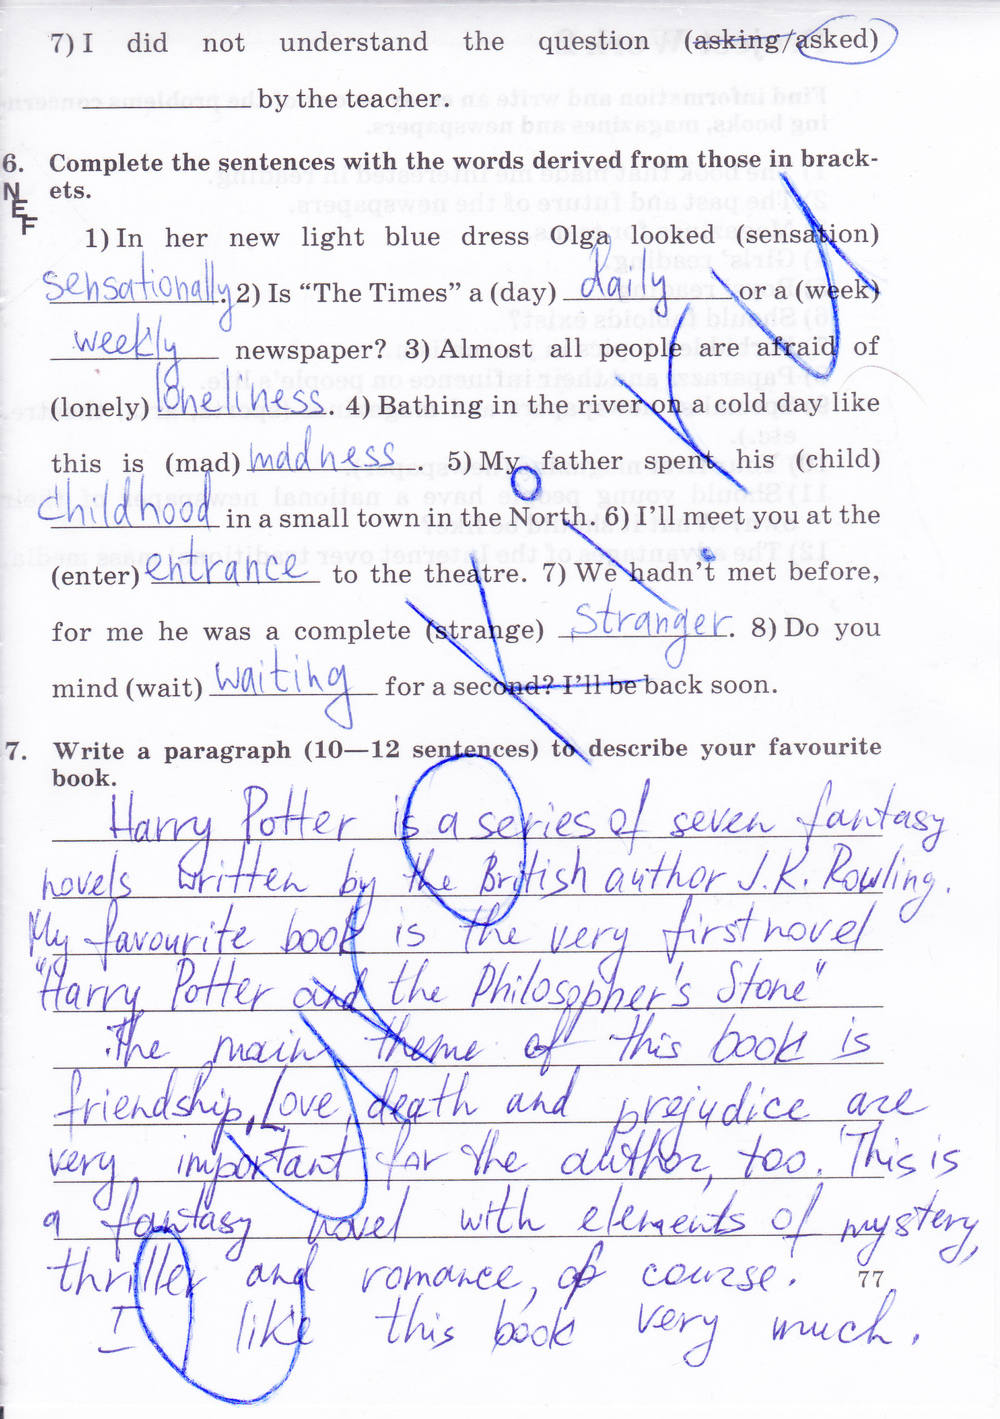 7) I did not understand the question (asking/asked)
____________ by the teacher.
6. Complete the sentences with the words derived from those in brack-
NEF ets.
1) In her new light blue dress Olga looked (sensation)
sensationally. 2) Is “The Times” a (day) daily or a (week)
weekly newspaper? 3) Almost all people are afraid of
(lonely) loneliness. 4) Bathing in the river on a cold day like
this is (mad) madness. 5) My father spent his (child)
childhood in a small town in the North. 6) I’ll meet you at the
(enter) entrance to the theatre. 7) We hadn’t met before,
for me he was a complete (strange) stranger. 8) Do you
mind (wait) waiting for a second? I’ll be back soon.
7. Write a paragraph (10—12 sentences) to describe your favourite
book.
Harry Potter is a series of seven fantasy
novels written by the British author J.K. Rowling.
My favourite book is the very first novel
"Harry Potter and the Philosopher's Stone"
The main theme of this book is
friendship. Love, death and prejudice are
very important for the author, too. This is
a fantasy novel with elements of mystery,
thriller and romance, of course.
77
I like this book very much.